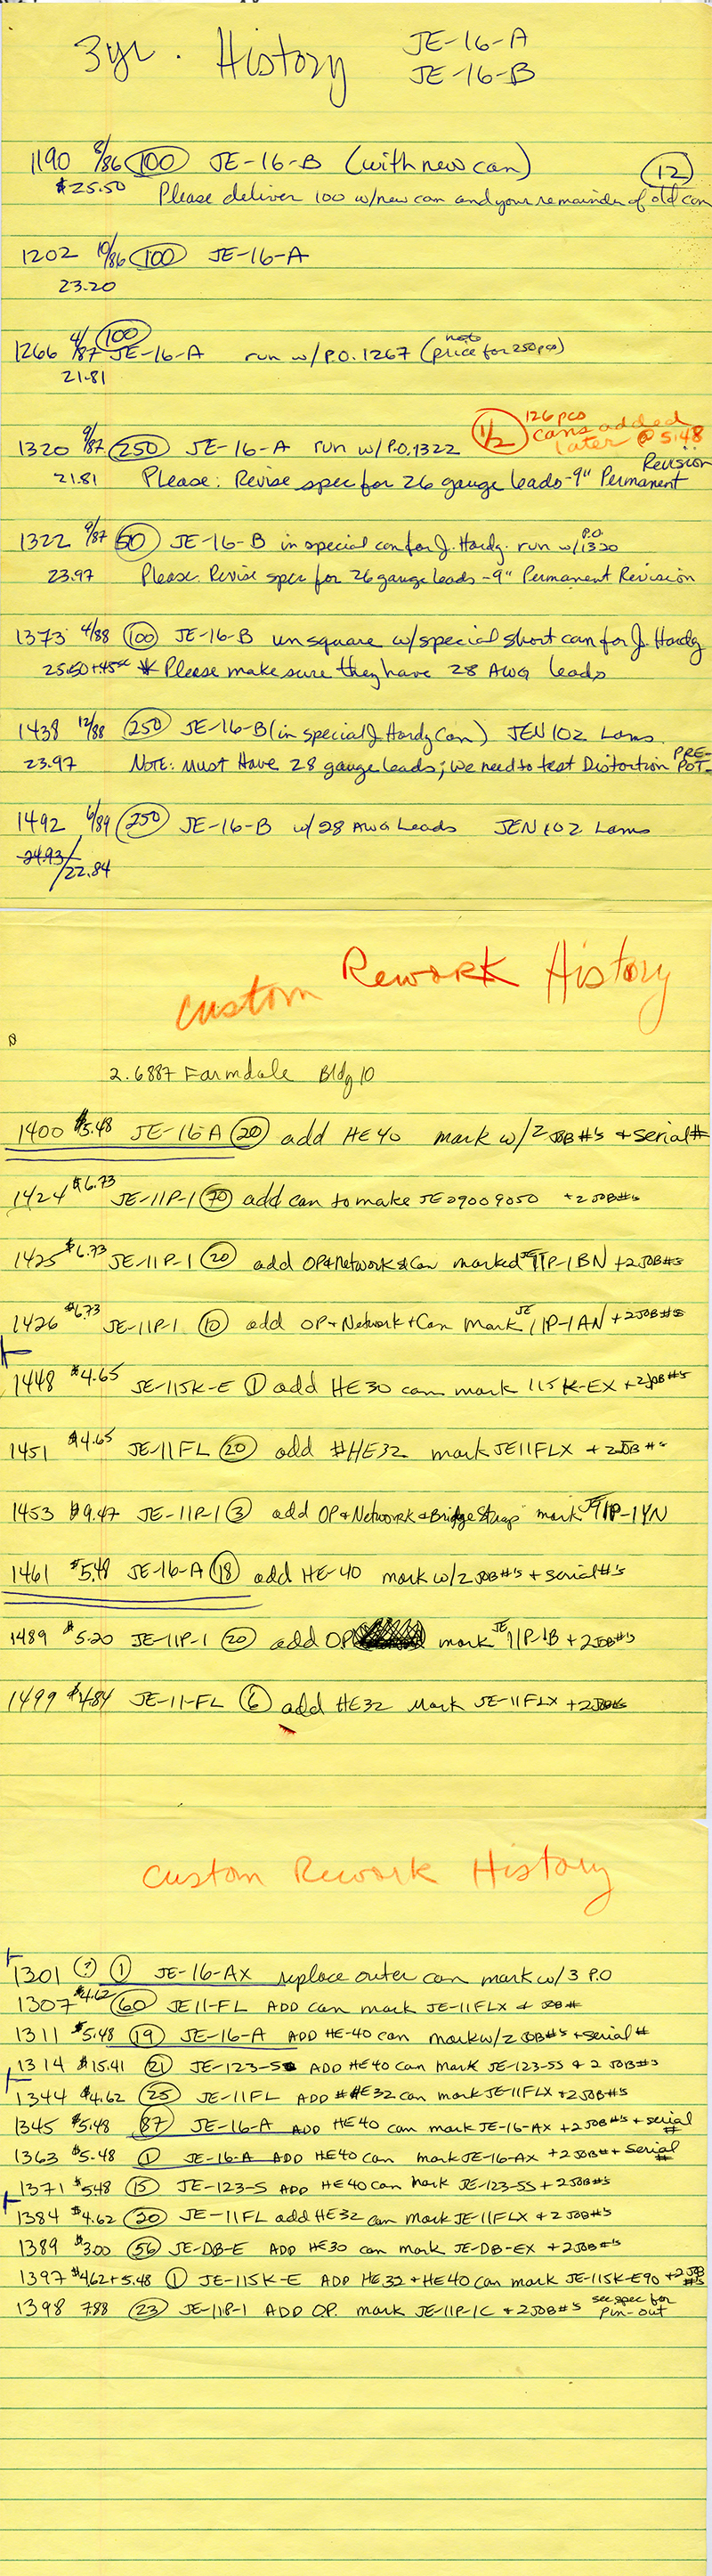 3yr. History JE-16-A
JE-16-B
1190 8/86 100 JE-16-B (with new can) 12
$25.50 Please deliver 100 w/new can and your remainder of old can
1202 10/86 100 JE-16-A
23.20
1266 4/87 100 JE-16-A run w/P.O. 1267 (note price for 250 pcs)
21.81
126 pcs
1/2 cans added
later @ 5.48
1320 9/87 250 JE-16-A run w/P.O. 1322
21.81 Please: Revise spec for 26 gauge leads-9" Permanent Revision
1322 9/87 50 JE-16-B in special can for J. Hardy. run w/P.O. 1320
23.97 Please: Revise spec for 26 gauge leads-9" Permanent Revision
1373 4/88 100 JE-16-B unsquare w/special short can for J. Hardy
25.50+.45 * Please make sure they have 28 AWG leads
1438 12/88 250 JE-16-B (in special J Hardy Can) JEN102 Lams.
23.97 NOTE: Must Have 28 gauge leads; we need to test Distortion PRE-POT-
1492 6/89 250 JE-16-B w/28 AWG Leads JEN102 Lams
24.93/22.84
Custom Rework History
2.6887 Farmdale Bldg 10
1400 $5.48 JE-16-A 20 add HE40 mark w/2 JOB#'s + serial#
1424 $6.73 JE-11P-1 70 add can to make JE29009050 +2 JOB#'s
1425 $6.73 JE-11P-1 20 add OP+Network+Can marked JE11P-1BN +2JOB#'s
1426 $6.73 JE-11P-1 10 add OP+Network+Can Mark JE11P-1AN +2JOB#'s
1448 $4.65 JE-115K-E 1 add HE30 can mark 115K-EX +2JOB#'s
1451 $4.65 JE-11FL 20 add #HE32 mark JE11FLX +2JOB#'s
1453 $9.47 JE-11P-1 3 add OP+Network+Bridge Strap mark JE11P-1YN
1461 $5.48 JE-16-A 18 add HE-40 mark w/2 JOB#'s + serial#'s
1489 $5.20 JE-11P-1 20 add OP mark JE11P-1B +2JOB#'s
1499 $4.84 JE-11-FL 6 add HE32 Mark JE-11FLX +2JOB#s
Custom Rework History
1301 ? 1 JE-16-AX replace outer can mark w/ 3 P.O
1307 $4.62 60 JE11-FL ADD can mark JE-11FLX + JOB#
1311 $5.48 19 JE-16-A ADD HE-40 can mark w/2 JOB#'s + serial #
1314 $15.41 21 JE-123-S ADD HE40 can Mark JE-123-SS + 2 JOB#'s
1344 $4.62 25 JE-11FL ADD #HE32 can mark JE11FLX +2JOB#'s
1345 $5.48 87 JE-16-A ADD HE40 can mark JE-16-AX +2JOB#'s + serial #
1363 $5.48 1 JE-16-A ADD HE40 can mark JE-16-AX +2JOB#s + serial #
1371 $5.48 15 JE-123-S ADD HE40 can Mark JE-123-SS +2JOB#'s
1384 $4.62 20 JE-11FL add HE32 can Mark JE11FLX + 2 JOB#'s
1389 $3.00 56 JE-DB-E ADD HE30 can mark JE-DB-EX +2JOB#'s
1397 $4.62+5.48 1 JE-115K-E ADD HE32+HE40 can mark JE-115K-E90 +2JOB #'s
1398 7.88 23 JE-11P-1 ADD OP. mark JE-11P-1C +2JOB#'s see spec for pin-out